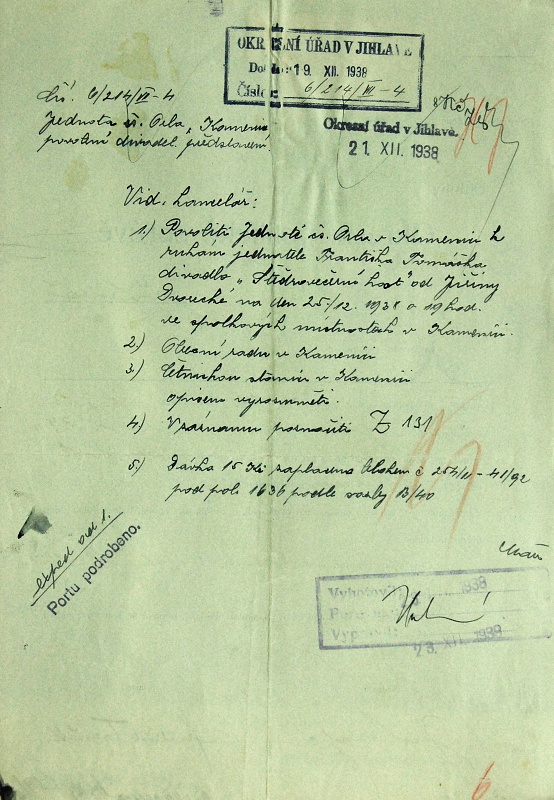 OKRESNÍ ÚŘAD V JIHLAVĚ
Došlo: 19. XII. 1938
Číslo: 6/214/VI-4
Okresní úřad v Jihlavě.
21. XII. 1938
Čís. 6/214/VI-4
Jednota čs. Orla, Kamenice
povolení divadel. představení.
Vid. kancelář:
1.) Povoliti Jednotě čs. Orla v Kamenici k
rukám jednatele Františka Tomáška
divadlo "Štědrovečerní host" od Jiřiny
na den 25./12. 1938 o 19 hod.
ve spolkových místnostech v Kamenici.
2.) Obecní radu v Kamenici
3.) Četnickou stanici v Kamenici
opisem vyrozuměti.
4.) V seznamu poznačiti Z 131
5.) Dávka 15 Kč zaplacena
pod pol. 1636 podle sazby B/40
exped. ad 1.
Portu podrobeno.
Vyhotov 1938
23. XII. 1938
6